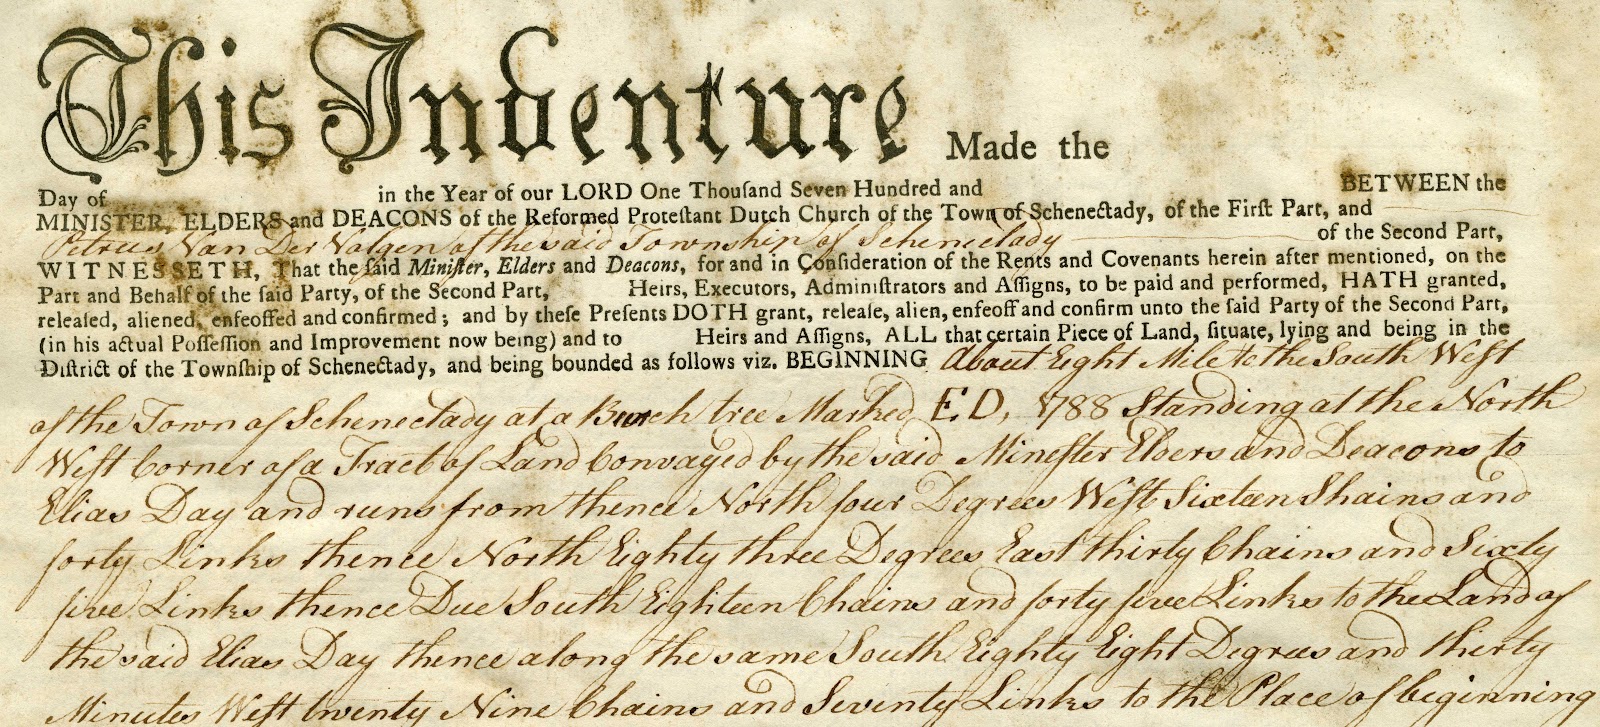 This Indenture Made the
Day of in the Year of our LORD One Thouſand Seven Hundred and BETWEEN the
MINISTER, ELDERS and DEACONS of the Reformed Proteſtant Dutch Church of the Town of Schenectady, of the Firſt Part, and
Petrus Van Der Volgen of the said Township of Schenectady of the Second Part,
WITNESSETH, That the ſaid Miniſter, Elders and Deacons, for and in Conſideration of the Rents and Covenants herein after mentioned, on the
Part and Behalf of the ſaid Party, of the Second Part, Heirs, Executors, Adminiſtrators and Aſſigns, to be paid and performed, HATH granted,
releaſed, aliened, enfeoffed and confirmed; and by theſe Preſents DOTH grant, releaſe, alien, enfeoff and confirm unto the ſaid Party of the Second Part,
(in his actual Poſſeſſion and Improvement now being) and to Heirs and Aſſigns, ALL that certain Piece of Land, ſituate, lying and being in the
Diſtrict of the Townſhip of Schenectady, and being bounded as follows viz. BEGINNING About Eight Mile to the South Weſt
of the Town of Schenectady at a tree Marked E D, 1788 Standing at the North
Weſt Corner of a Tract of Land Convaged by the said Mineſter Elders and Deacons to
Elias Day and runs from thence North four Degrees Weſt Sixteen Shains and
forty Links thence North Eighty three Degrees East thirty Chains and Sixty
five Links thence Due South Eighteen Chains and forty five Links to the Land of
the said Elias Day thence along the same South Eighty Eight Degrees and thirty
Minutes Weſt twenty Nine Chains and Seventy Links to the Place of beginning